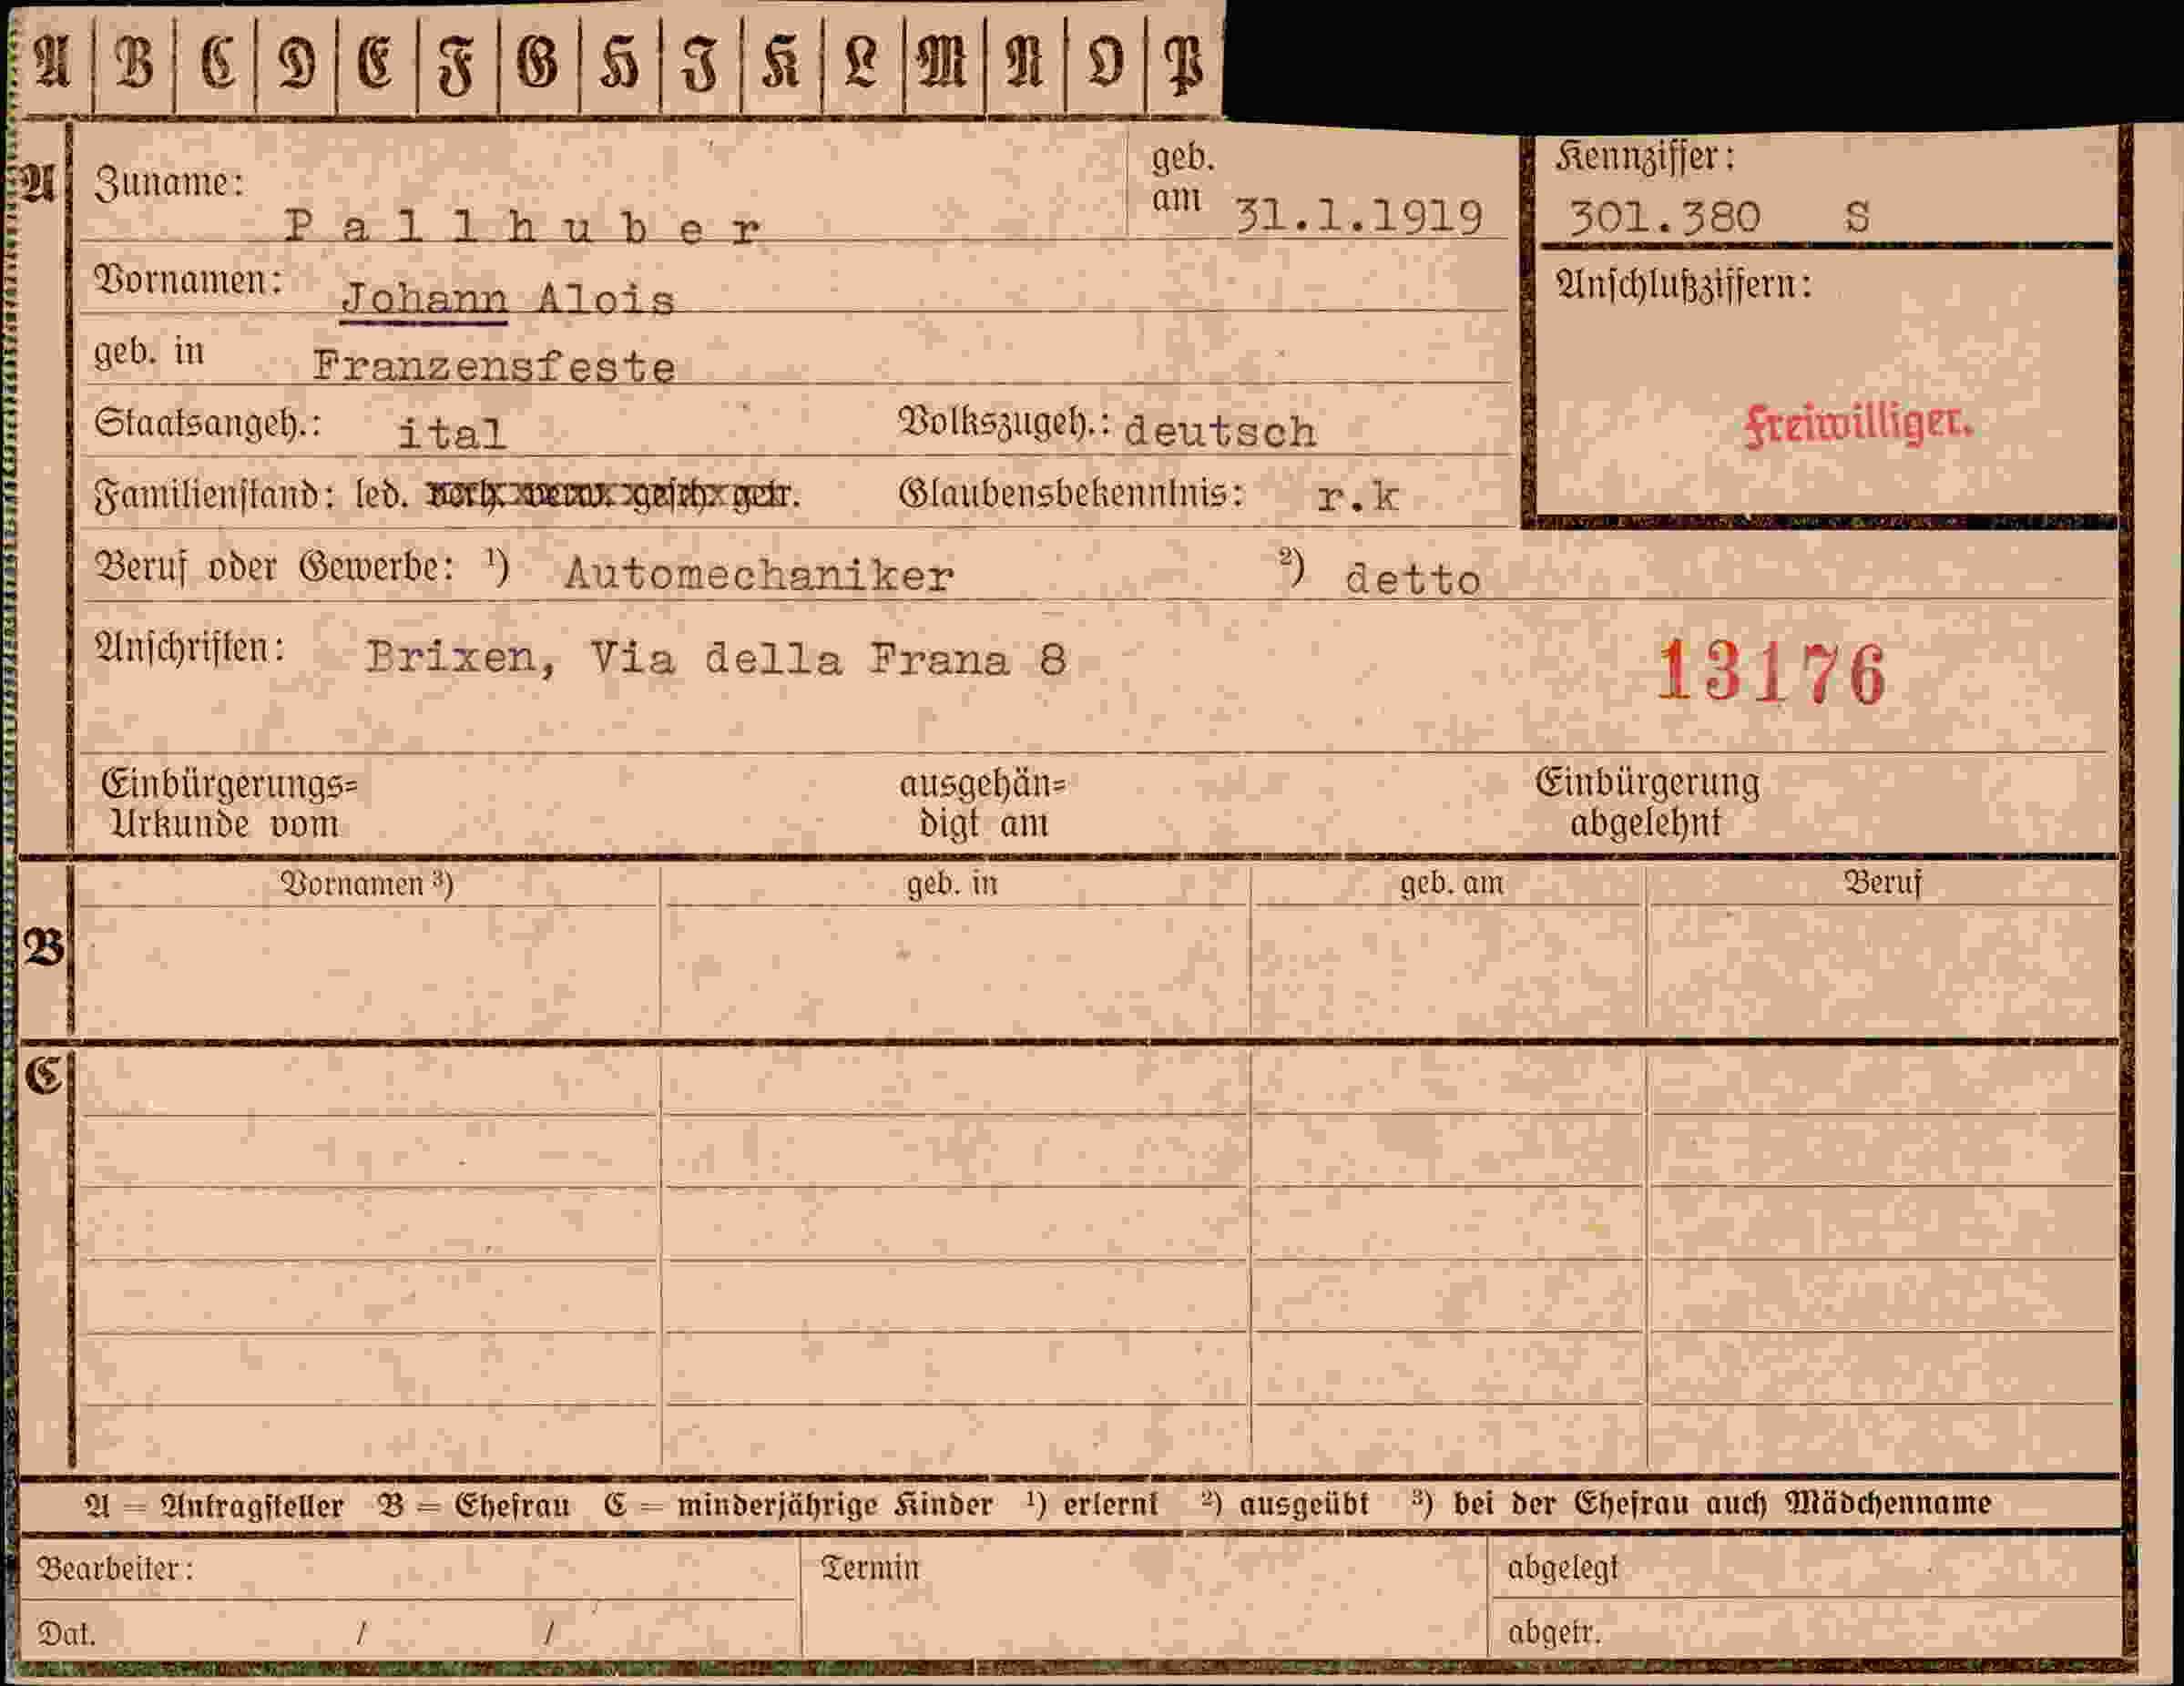 A B C D E F G H I K L M N O P
A Zuname: Pallhuber geb. am 31.1.1919 Kennziffer: 301.380 S
Vornamen: Johann Alois Anschlußziffern:
geb. in Franzensfeste
Staatsangeh.: ital Volkszugeh.: deutsch Freiwilliger.
Familienstand: led. verh. verw. gesch. getr. Glaubensbekenntnis: r.k
Beruf oder Gewerbe: ¹) Automechaniker ²) detto
Anschriften: Brixen, Via della Frana 8 13176
Einbürgerungs= ausgehän= Einbürgerung
Urkunde vom digt am abgelehnt
Vornamen ³) geb. in geb. am Beruf
B
C
A = Antragsteller B = Ehefrau C = minderjährige Kinder ¹) erlernt ²) ausgeübt ³) bei der Ehefrau auch Mädchenname
Bearbeiter: Termin abgelegt
Dat. / / abgetr.